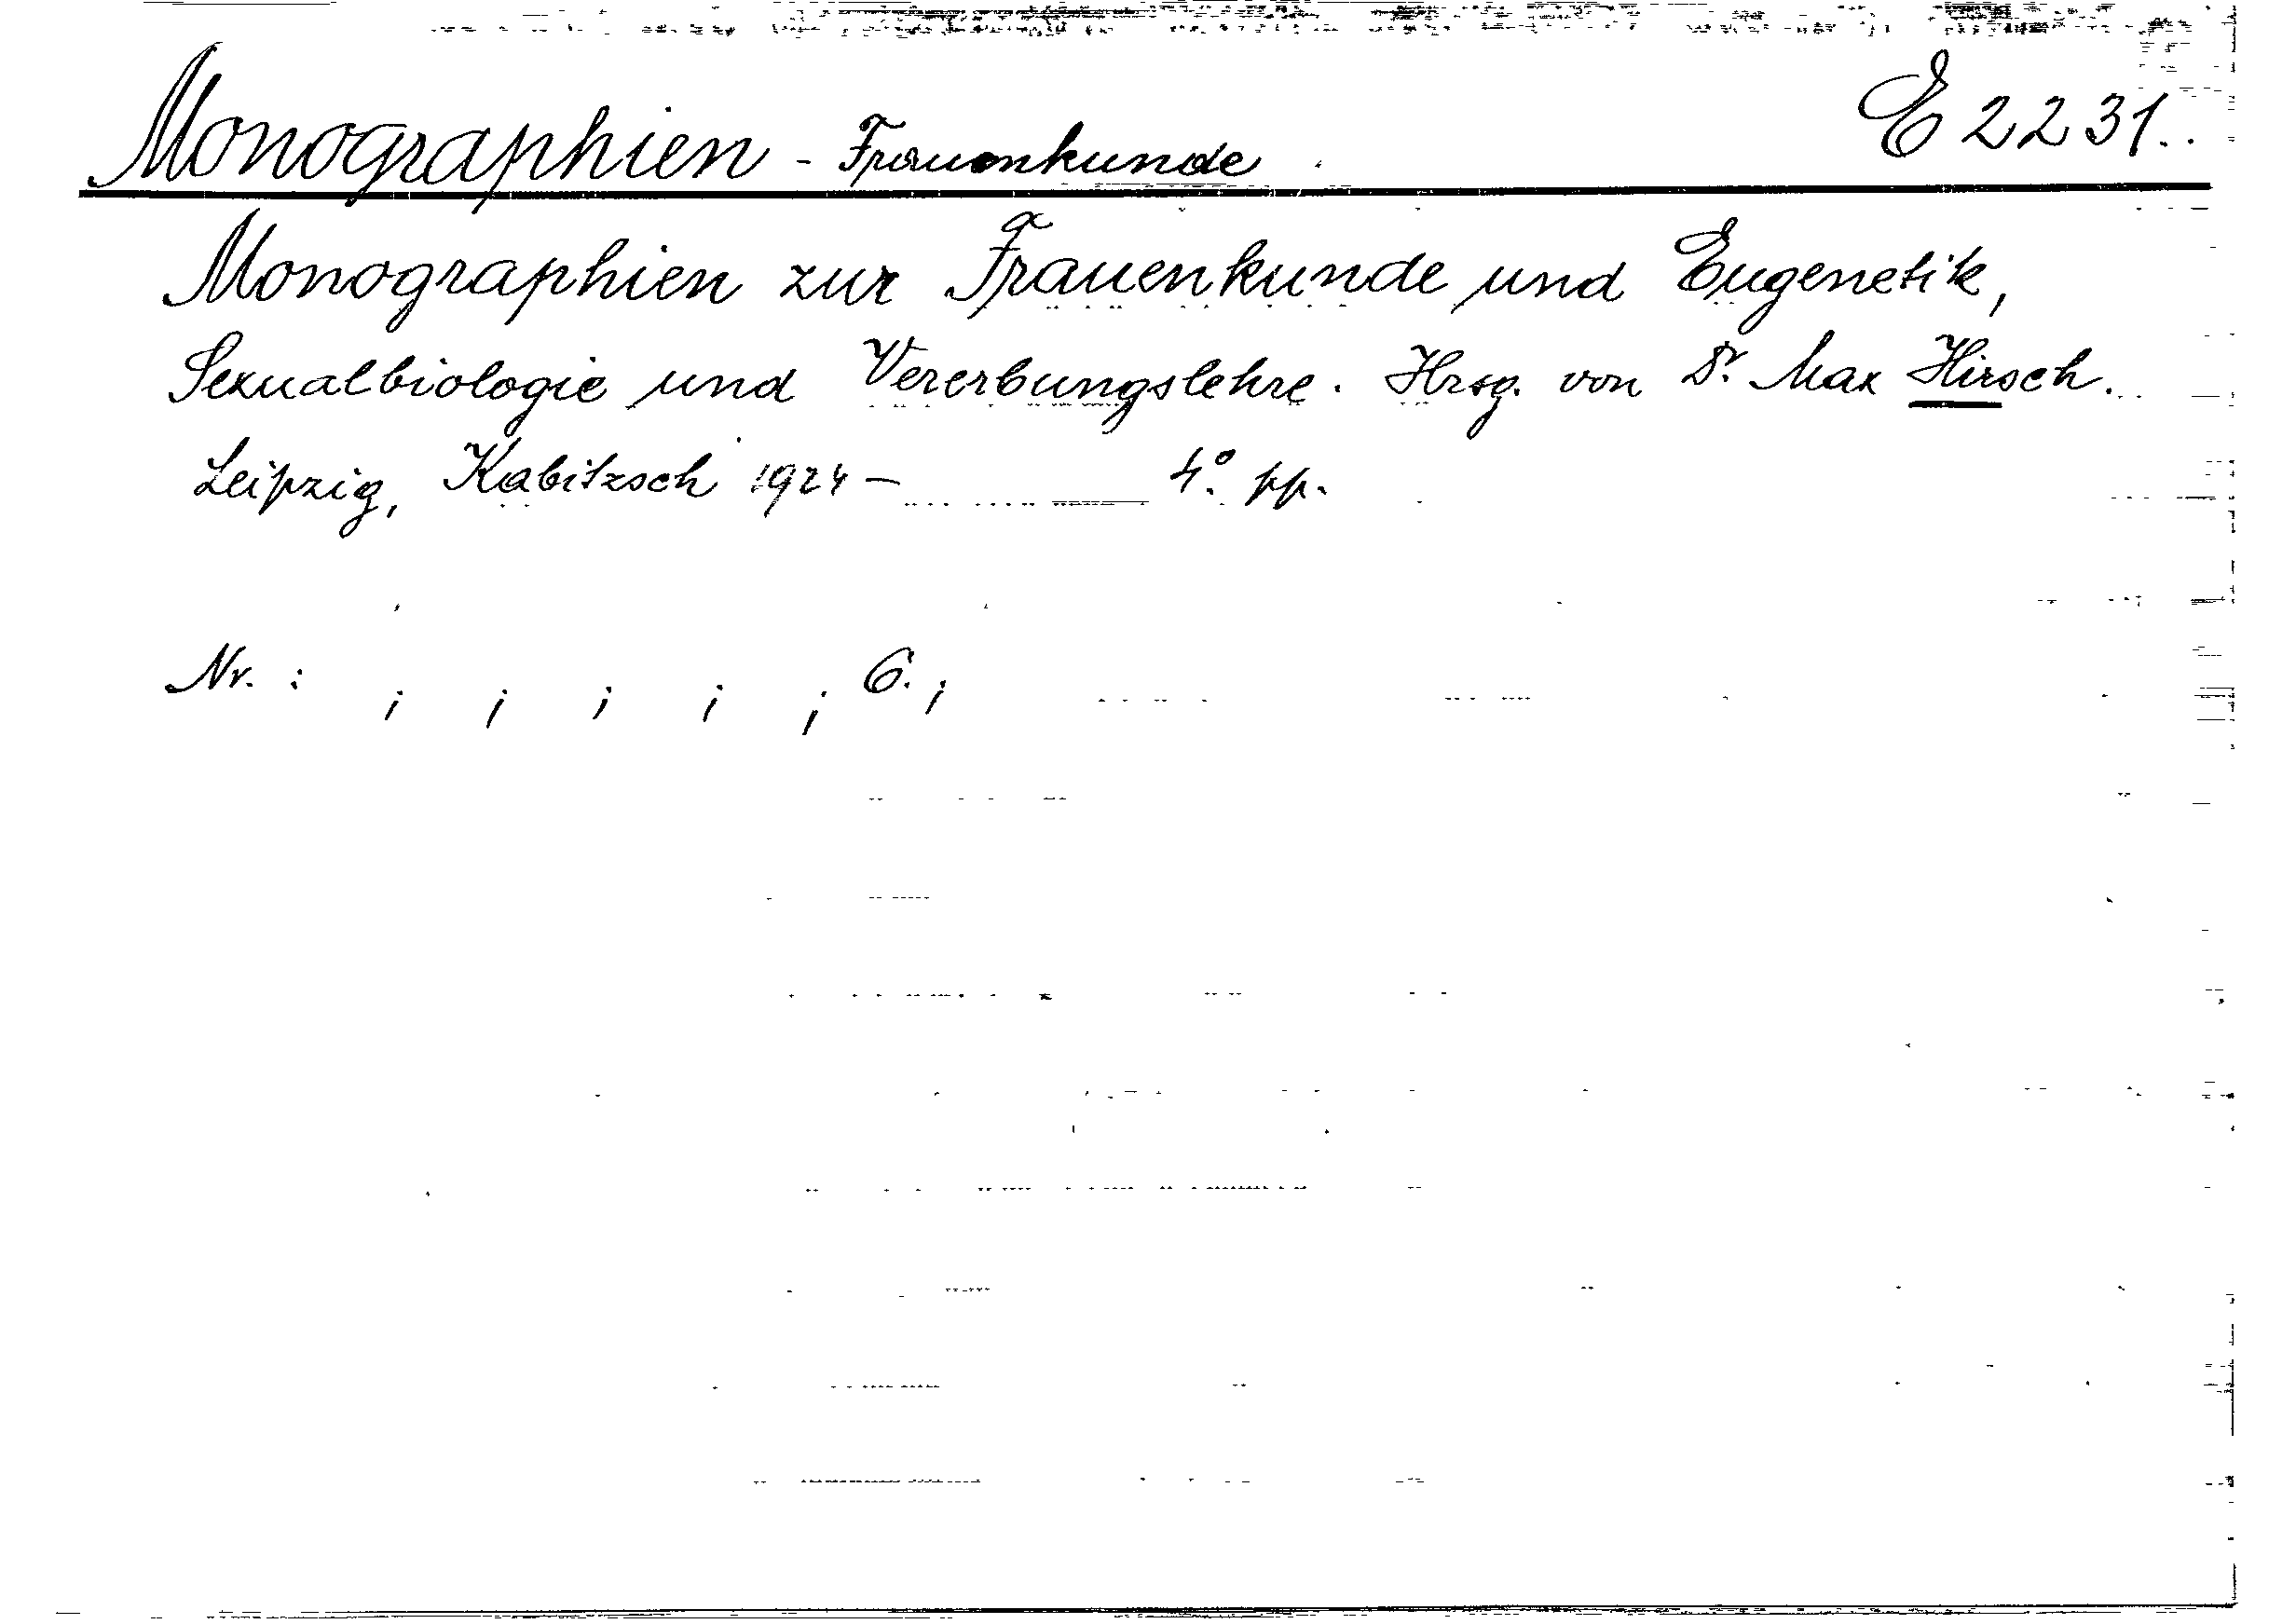 Monographien - Frauenkunde E 2231.
Monographien zur Frauenkunde und Eugenetik,
Sexualbiologie und Vererbungslehre. Hrsg. von Dr. Max Hirsch.
Leipzig, Kabitzsch 1924 - 4° pp.
Nr. : ; ; ; ; ; 6. ;